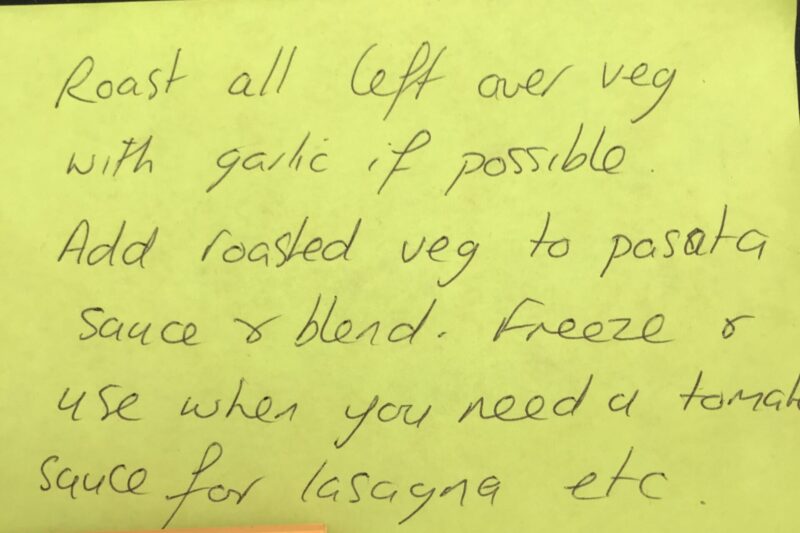 Roast all left over veg
with garlic if possible.
Add roasted veg to pasata
sauce & blend. Freeze &
use when you need a tomat
sauce for lasagna etc.